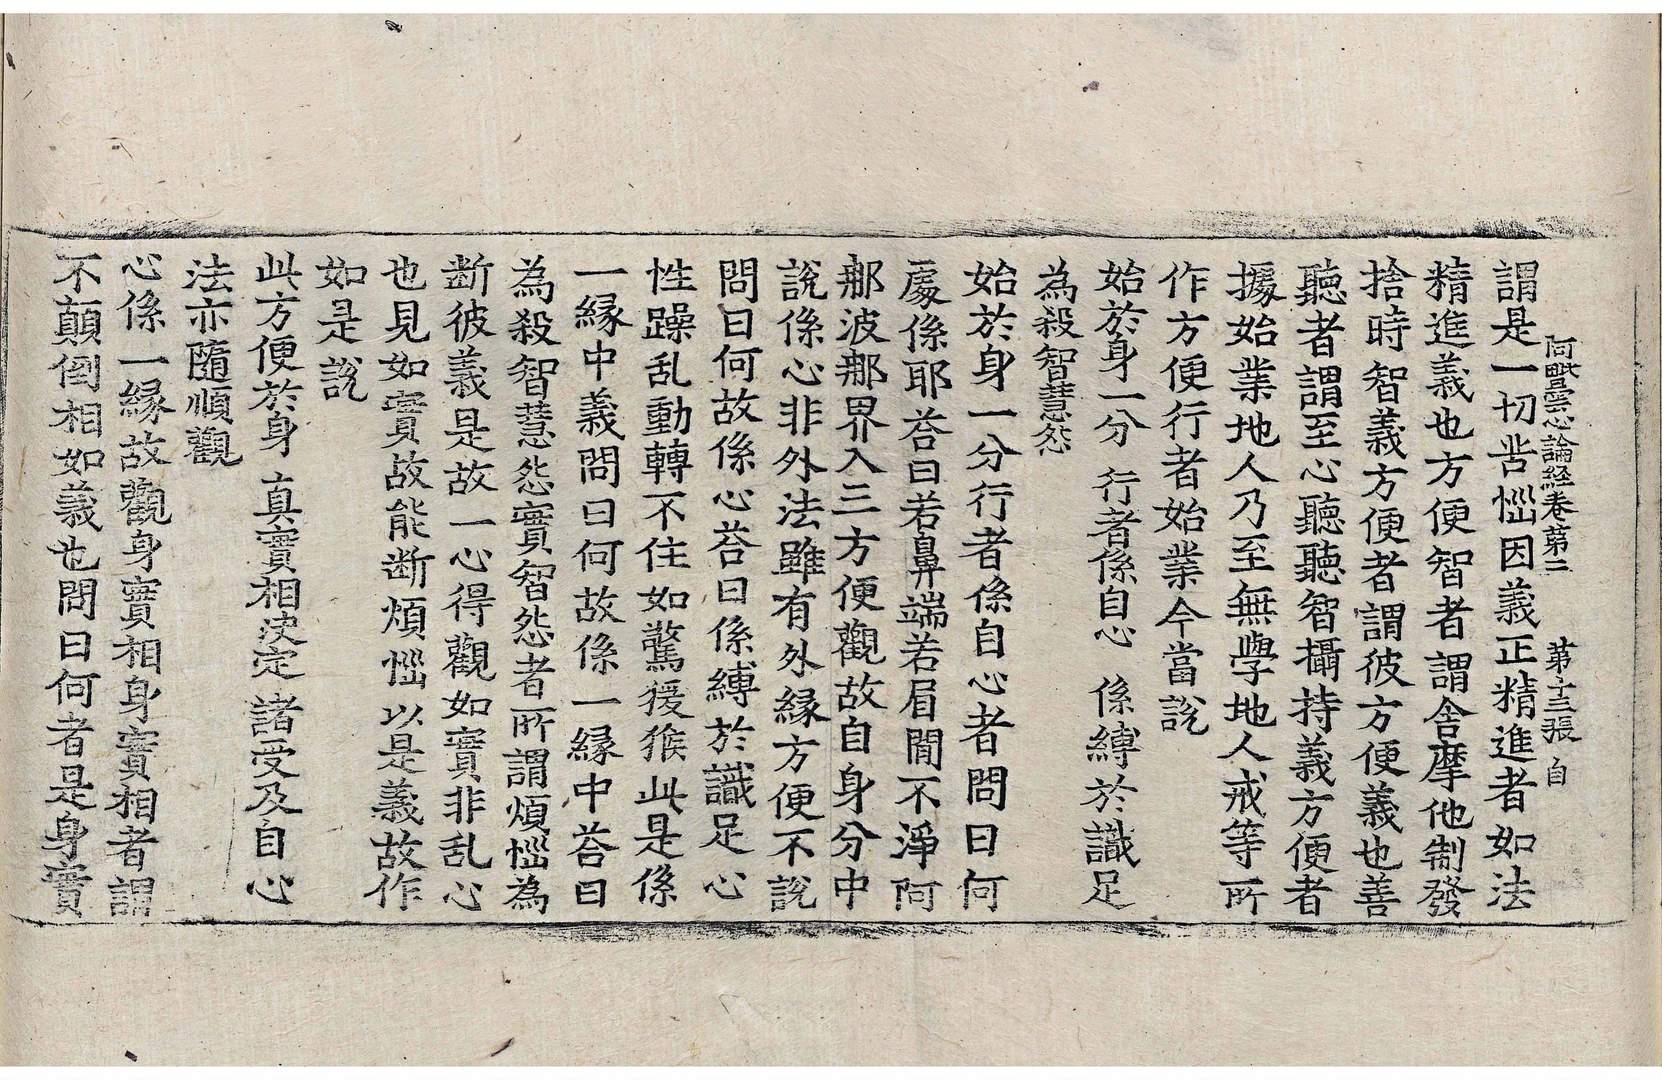 阿毗曇心論經卷第二 第十三張 自
謂是一切苦惱因義正精進者如法
精進義也方便智者謂舍摩他制發
捨時智義方便者謂彼方便義也善
聽者謂至心聽聽智攝持義方便者
據始業地人乃至無學地人戒等所
作方便行者始業今當說
始於身一分 行者係自心 係縛於識足
為殺智慧怨
始於身一分行者係自心者問曰何
處係耶荅曰若鼻端若眉間不淨阿
那波那界入三方便觀故自身分中
說係心非外法雖有外緣方便不說
問曰何故係心荅曰係縛於識足心
性躁乱動轉不住如驚猨猴此是係
一緣中義問曰何故係一緣中荅曰
為殺智慧怨實智怨者所謂煩惱為
断彼義是故一心得觀如實非乱心
也見如實故能断煩惱以是義故作
如是說
此方便於身 真實相決定 諸受及自心
法亦隨順觀
心係一緣故觀身實相身實相者謂
不顛倒相如義也問曰何者是身實